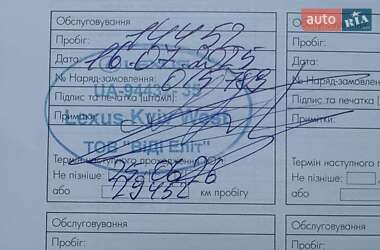 auto RIA
Обслуговування
Обслуговування
Пробіг: 14452
Пробіг:
Дата: 16.07.2025
Дата:
№ Наряд-замовлення:
№ Наряд-замовлення
Підпис та печатка (штамп):
Підпис та печатка
UA-9443
Примітки:
Lexus Kyiv West
ТОВ "ВіДі Еліт"
Термін наступного проходження ТО:
Термін наступного
Не пізніше:
Не пізніше:
або 29452 км пробігу
або
Обслуговування
Обслуговування
Пробіг:
Пробіг:
Дата:
Дата: